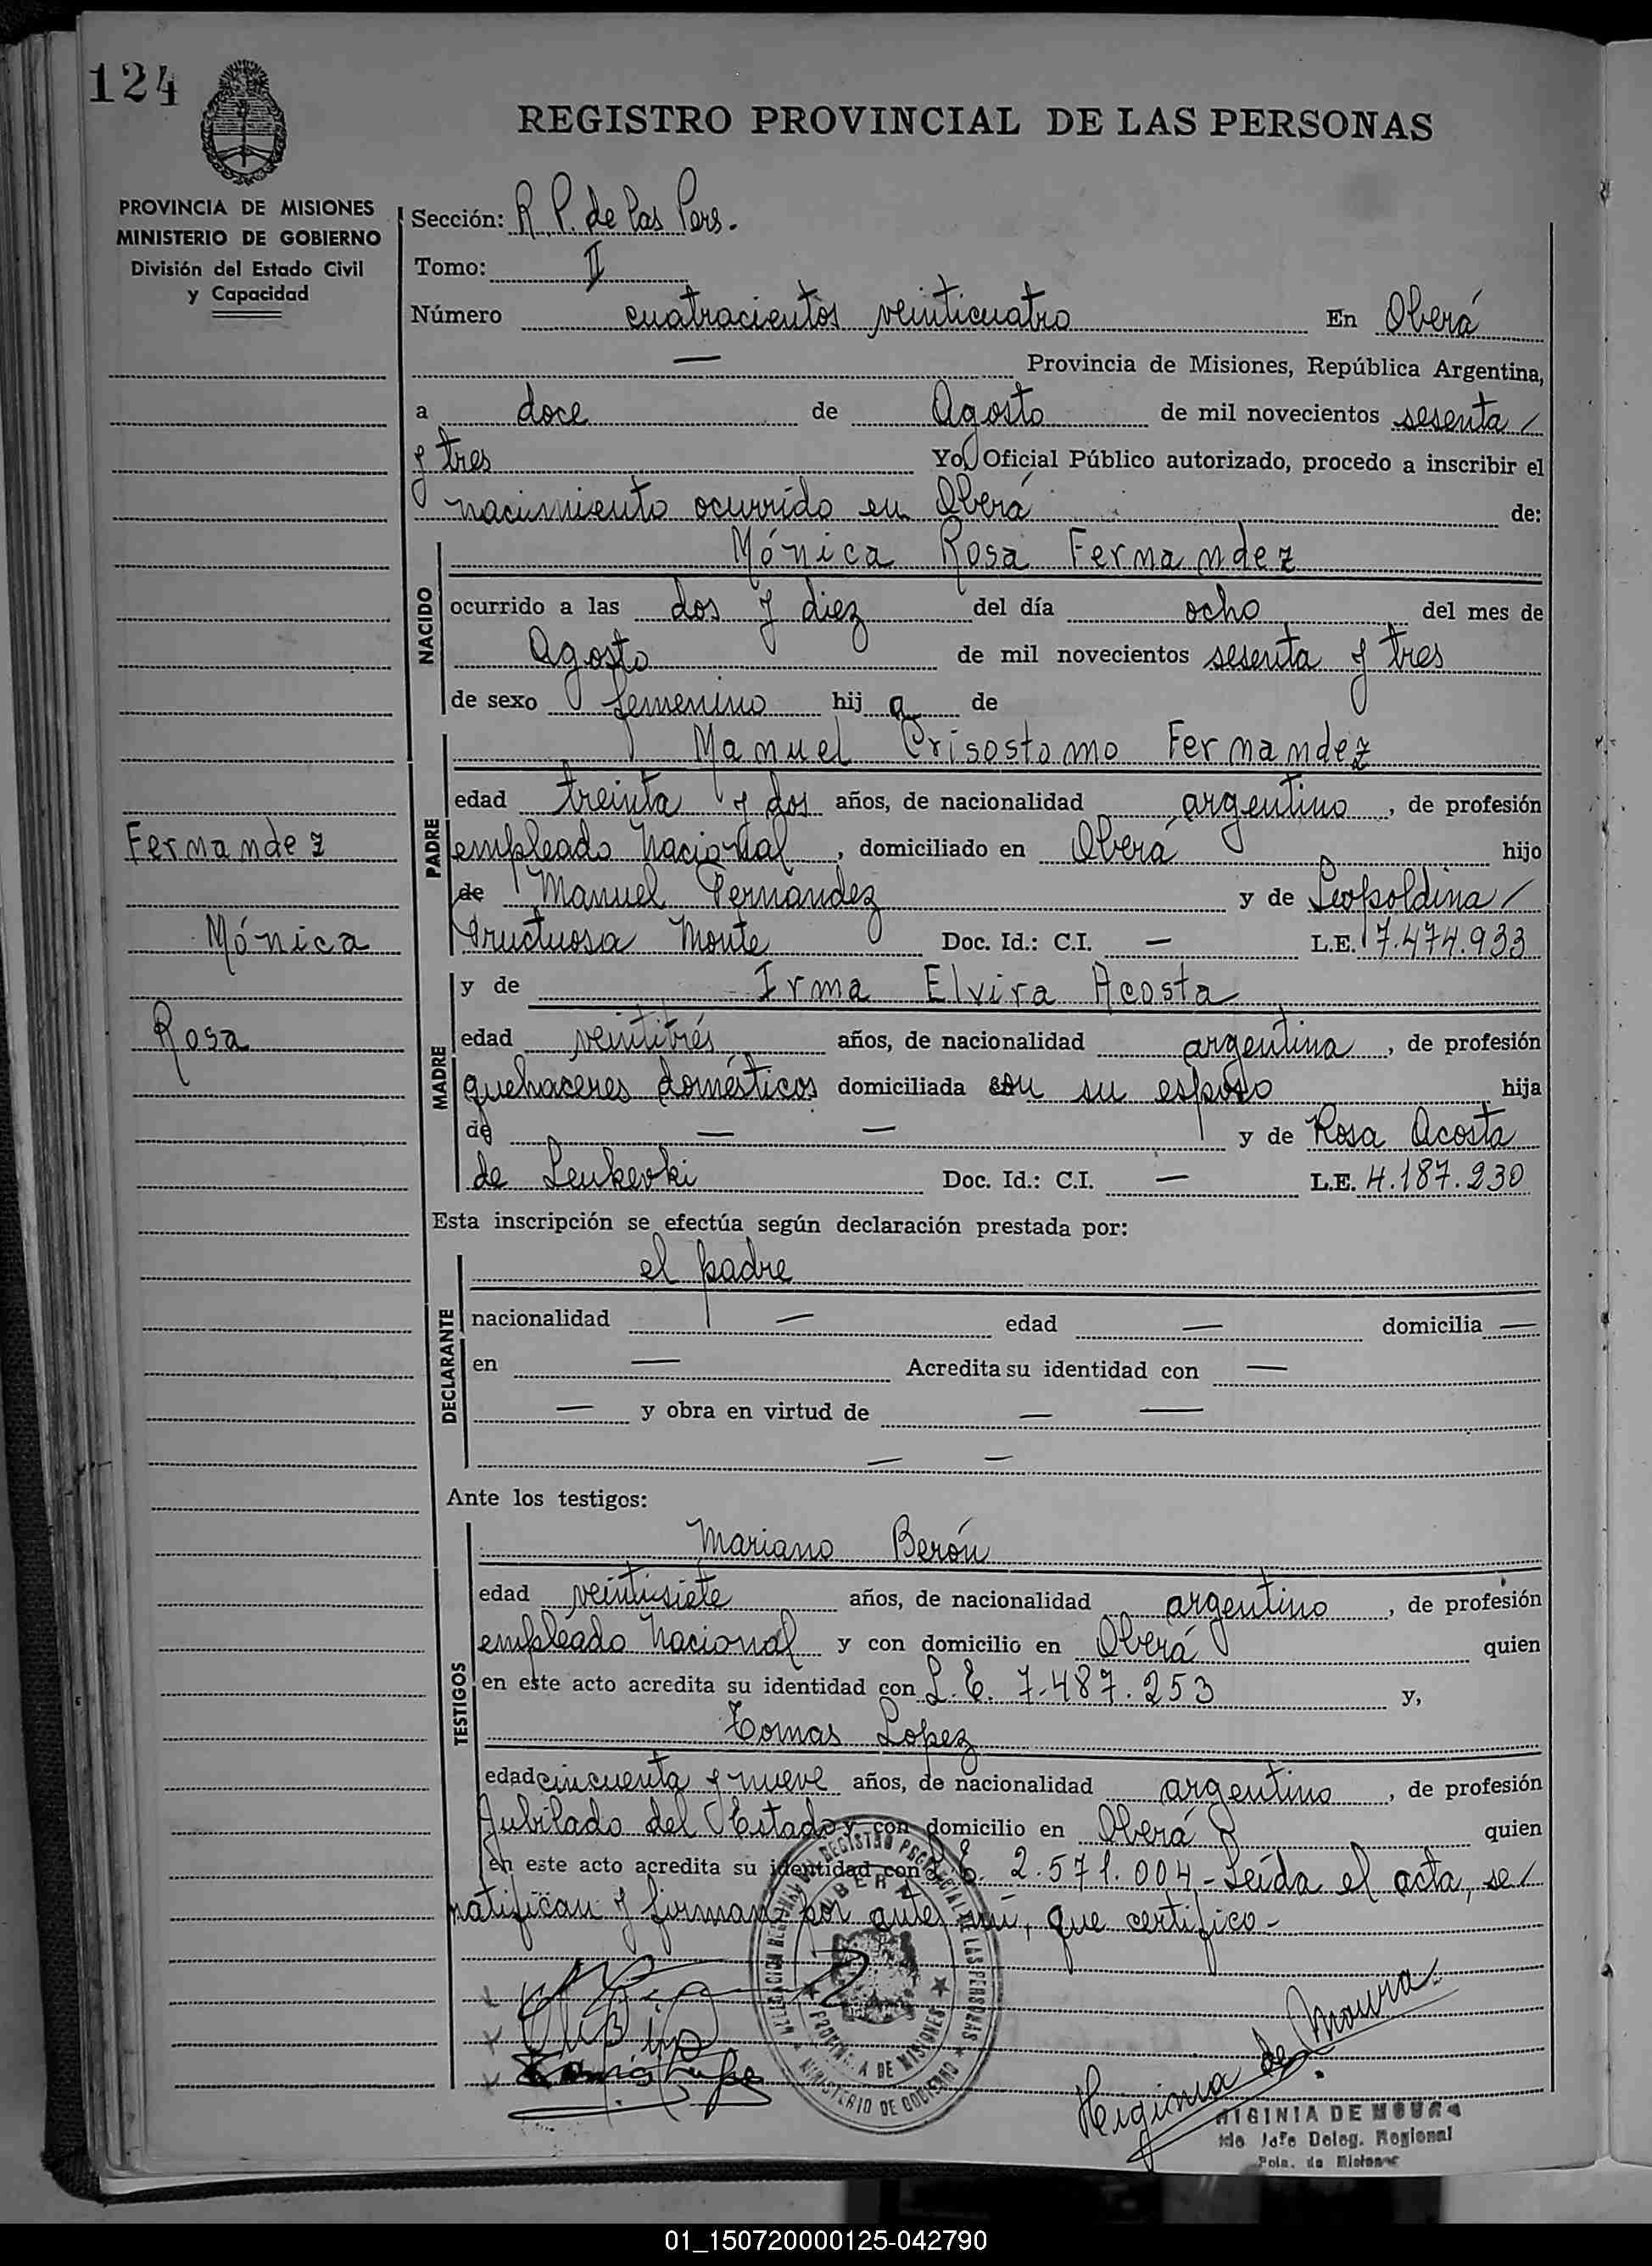 124
REGISTRO PROVINCIAL DE LAS PERSONAS
PROVINCIA DE MISIONES
MINISTERIO DE GOBIERNO
División del Estado Civil
y Capacidad
Sección: R. P. de las Pers.
Tomo: II
Número cuatracientos veinticuatro En Oberá
— Provincia de Misiones, República Argentina,
a doce de Agosto de mil novecientos sesenta /
y tres Yo, Oficial Público autorizado, procedo a inscribir el
nacimiento ocurrido en Oberá de:
NACIDO
Mónica Rosa Fernandez
ocurrido a las dos y diez del día ocho del mes de
Agosto de mil novecientos sesenta y tres
de sexo femenino hij a de
PADRE
Manuel Crisostomo Fernandez
edad treinta y dos años, de nacionalidad argentino, de profesión
empleado Nacional, domiciliado en Oberá hijo
de Manuel Fernandez y de Leopoldina /
Fructuosa Monte Doc. Id.: C.I. — L.E. 7.474.933
Fernandez
Mónica
Rosa
MADRE
y de Irma Elvira Acosta
edad veintitrés años, de nacionalidad argentina, de profesión
quehaceres domésticos domiciliada con su esposo hija
de — — y de Rosa Acosta
de Leukevki Doc. Id.: C.I. — L.E. 4.187.230
Esta inscripción se efectúa según declaración prestada por:
DECLARANTE
el padre
nacionalidad — edad — domicilia —
en — Acredita su identidad con —
— y obra en virtud de — —
— —
Ante los testigos:
TESTIGOS
Mariano Berón
edad veintisiete años, de nacionalidad argentino, de profesión
empleado Nacional y con domicilio en Oberá quien
en este acto acredita su identidad con L.E. 7.487.253 y,
Tomas Lopez
edad cincuenta y nueve años, de nacionalidad argentino, de profesión
Jubilado del Estado y con domicilio en Oberá quien
en este acto acredita su identidad con L.E. 2.571.004.- Leída el acta, se /
ratifican y firman por ante mí, que certifico.-
REGISTRO PROVINCIAL DE LAS PERSONAS
OBERA
PROVINCIA DE MISIONES
MINISTERIO DE GOBIERNO
Higinia de Moura
HIGINIA DE MOURA
Jefe Deleg. Regional
Pcia. de Misiones
01_150720000125-042790